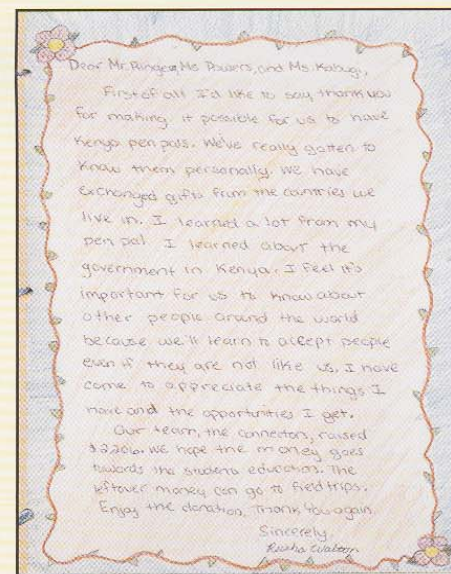 Dear Mr. Ringera, Ms. Powers, and Ms. Kabugi,
First of all I'd like to say thank you
for making it possible for us to have
Kenya pen pals. We've really gotten to
know them personally. We have
exchanged gifts from the countries we
live in. I learned a lot from my
pen pal. I learned about the
government in Kenya. I feel it's
important for us to know about
other people around the world
because we'll learn to accept people
even if they are not like us. I have
come to appreciate the things I
have and the opportunities I get.
Our team, the connectors, raised
we hope the money goes
towards the students education. The
leftover money can go to field trips.
Enjoy the donation. Thank You again.
Sincerely,
Watson